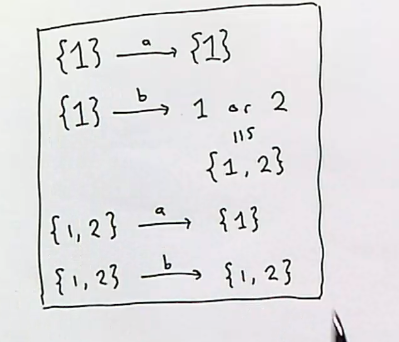 {1} a→ {1}
{1} b→ 1 or 2
{1, 2}
{1, 2} a→ {1}
{1, 2} b→ {1, 2}